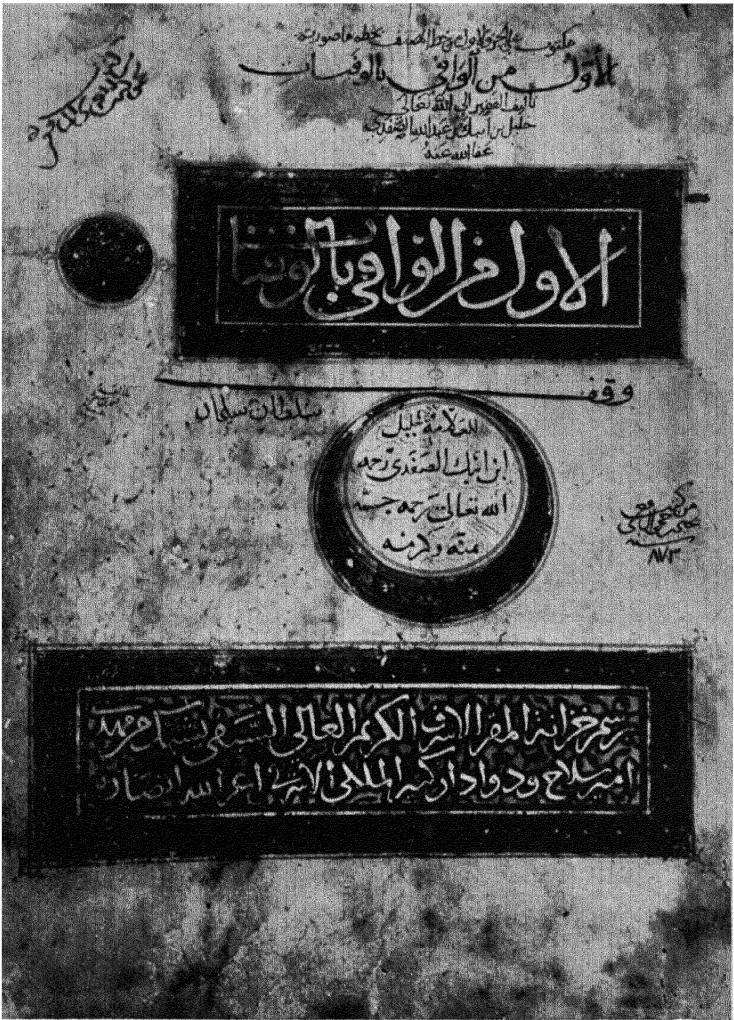 مكتوب على الجزء الاول بخط المصنف بخطه ما صورته
الأول من الوافي بالوفيات
تأليف الفقير الى الله تعالى
خليل بن أيبك بن عبد الله الصفدي
عفا الله عنه
الاول من الوافي بالوفيات
وقف
سلطان سليمان
للعلامة خليل
ابن ايبك الصفدي رحمه
الله تعالى برحمه جنته
منه وكرمه
سنة
٨٧٣
برسم خزانة المقر الاشرف الكريم العالي السيفي يشبك من مهدي
امير سلاح ودوادار كبير الملكي الاشرفي اعز الله انصاره